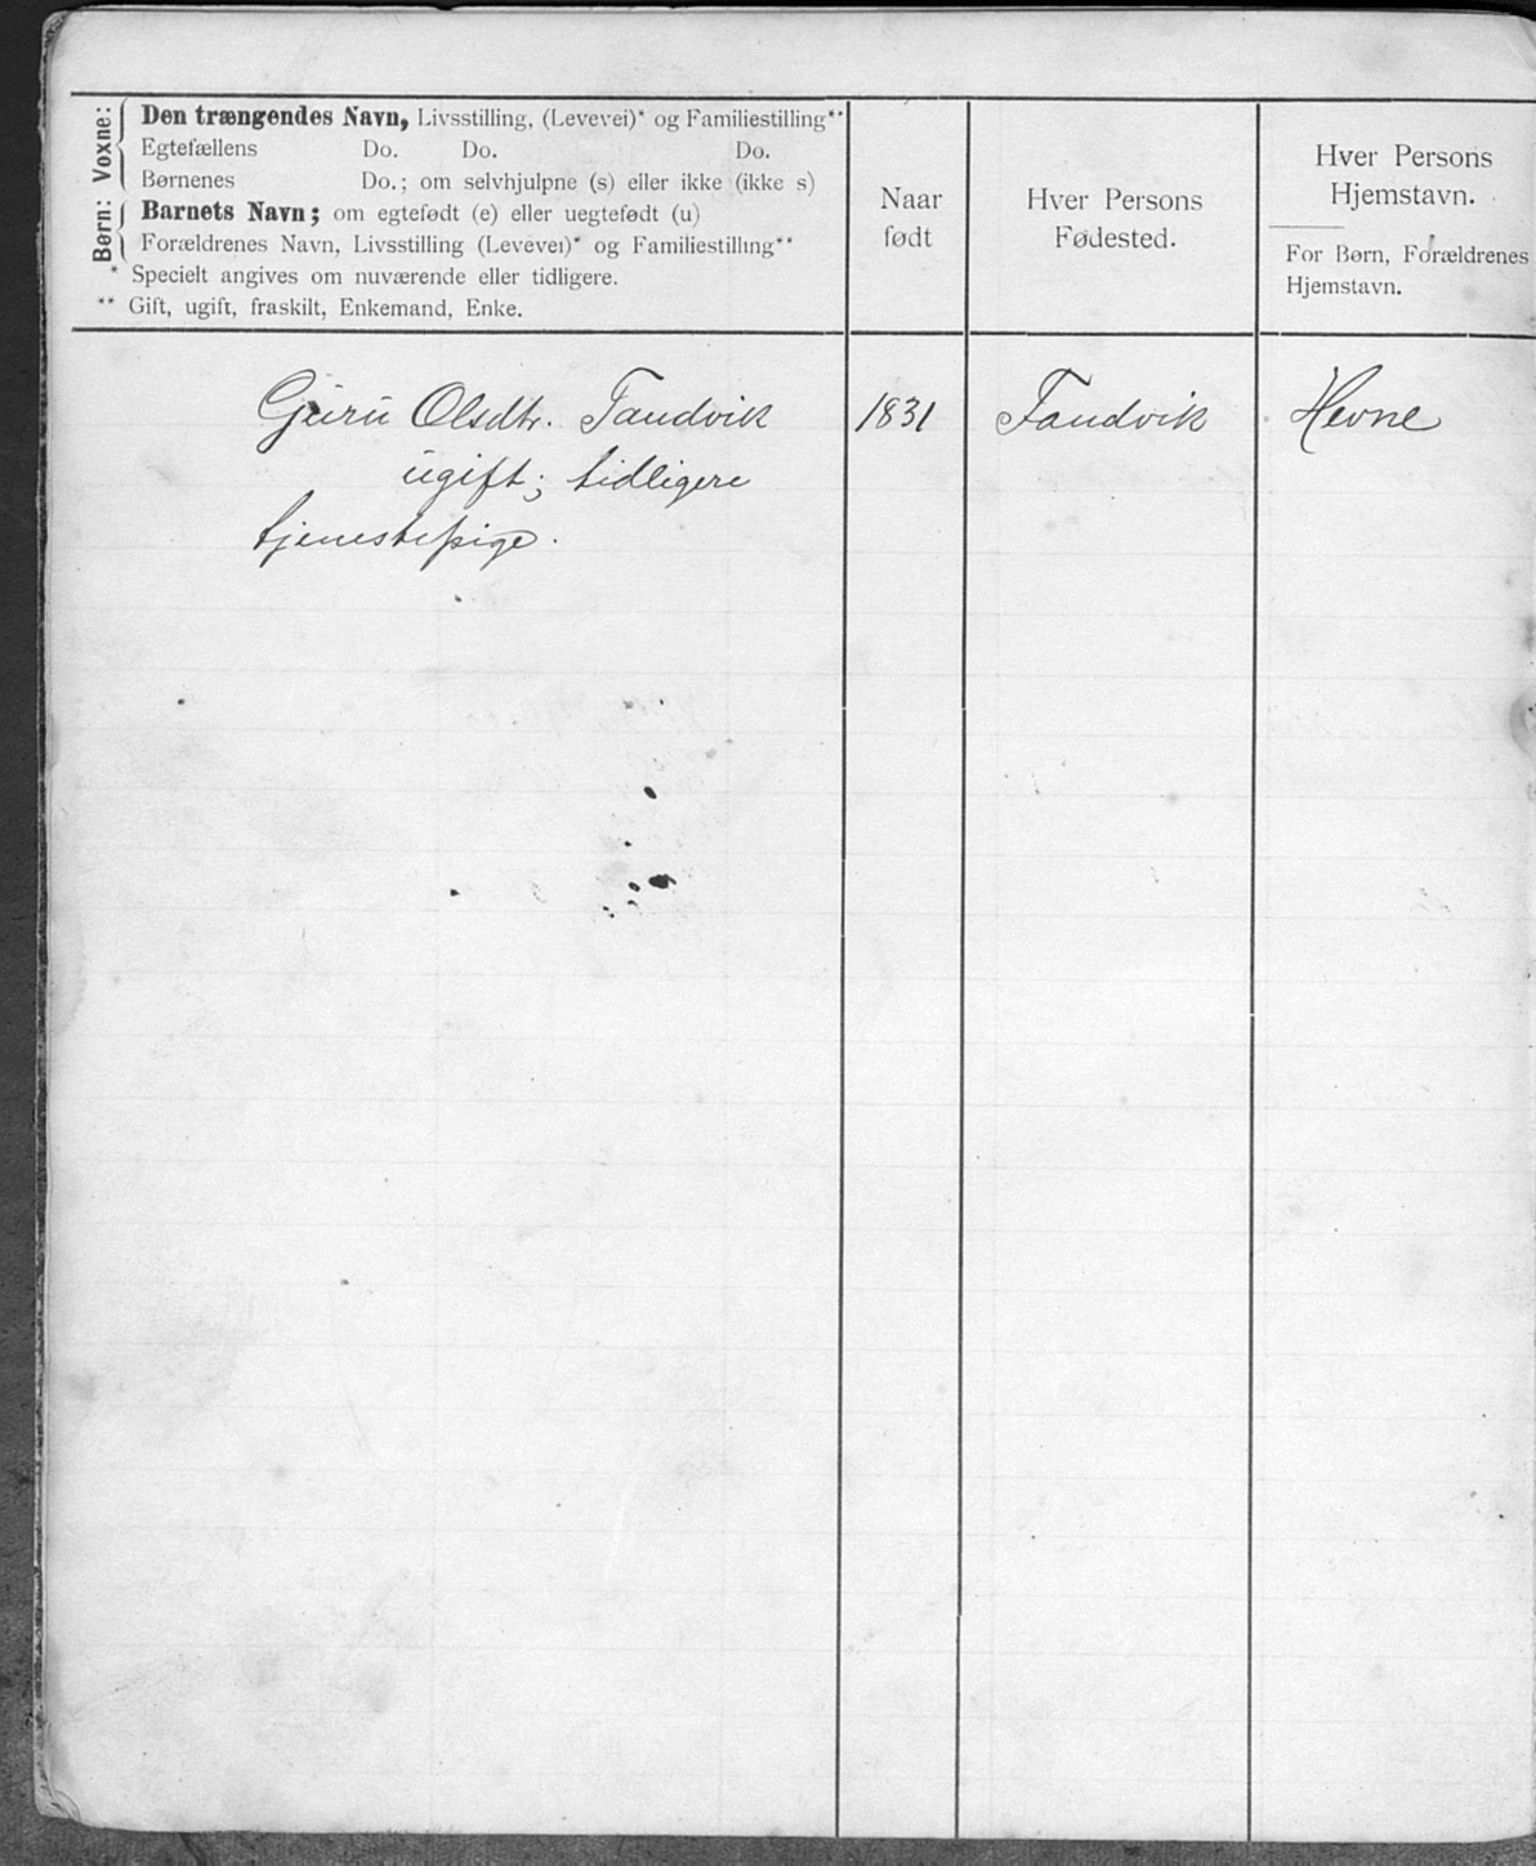 Voxne:
Den trængendes Navn, Livsstilling, (Levevei)* og Familiestilling**
Egtefællens Do. Do. Do.
Børnenes Do.; om selvhjulpne (s) eller ikke (ikke s)
Børn:
Barnets Navn; om egtefødt (e) eller uegtefødt (u)
Forældrenes Navn, Livsstilling (Levevei)* og Familiestilling**
* Specielt angives om nuværende eller tidligere.
** Gift, ugift, fraskilt, Enkemand, Enke.
Naar
født
Hver Persons
Fødested.
Hver Persons
Hjemstavn.
For Børn, Forældrenes
Hjemstavn.
Guru Olsdtr. Taudvik 1831 Taudvik Hevne
ugift; tidligere
tjenestepige.